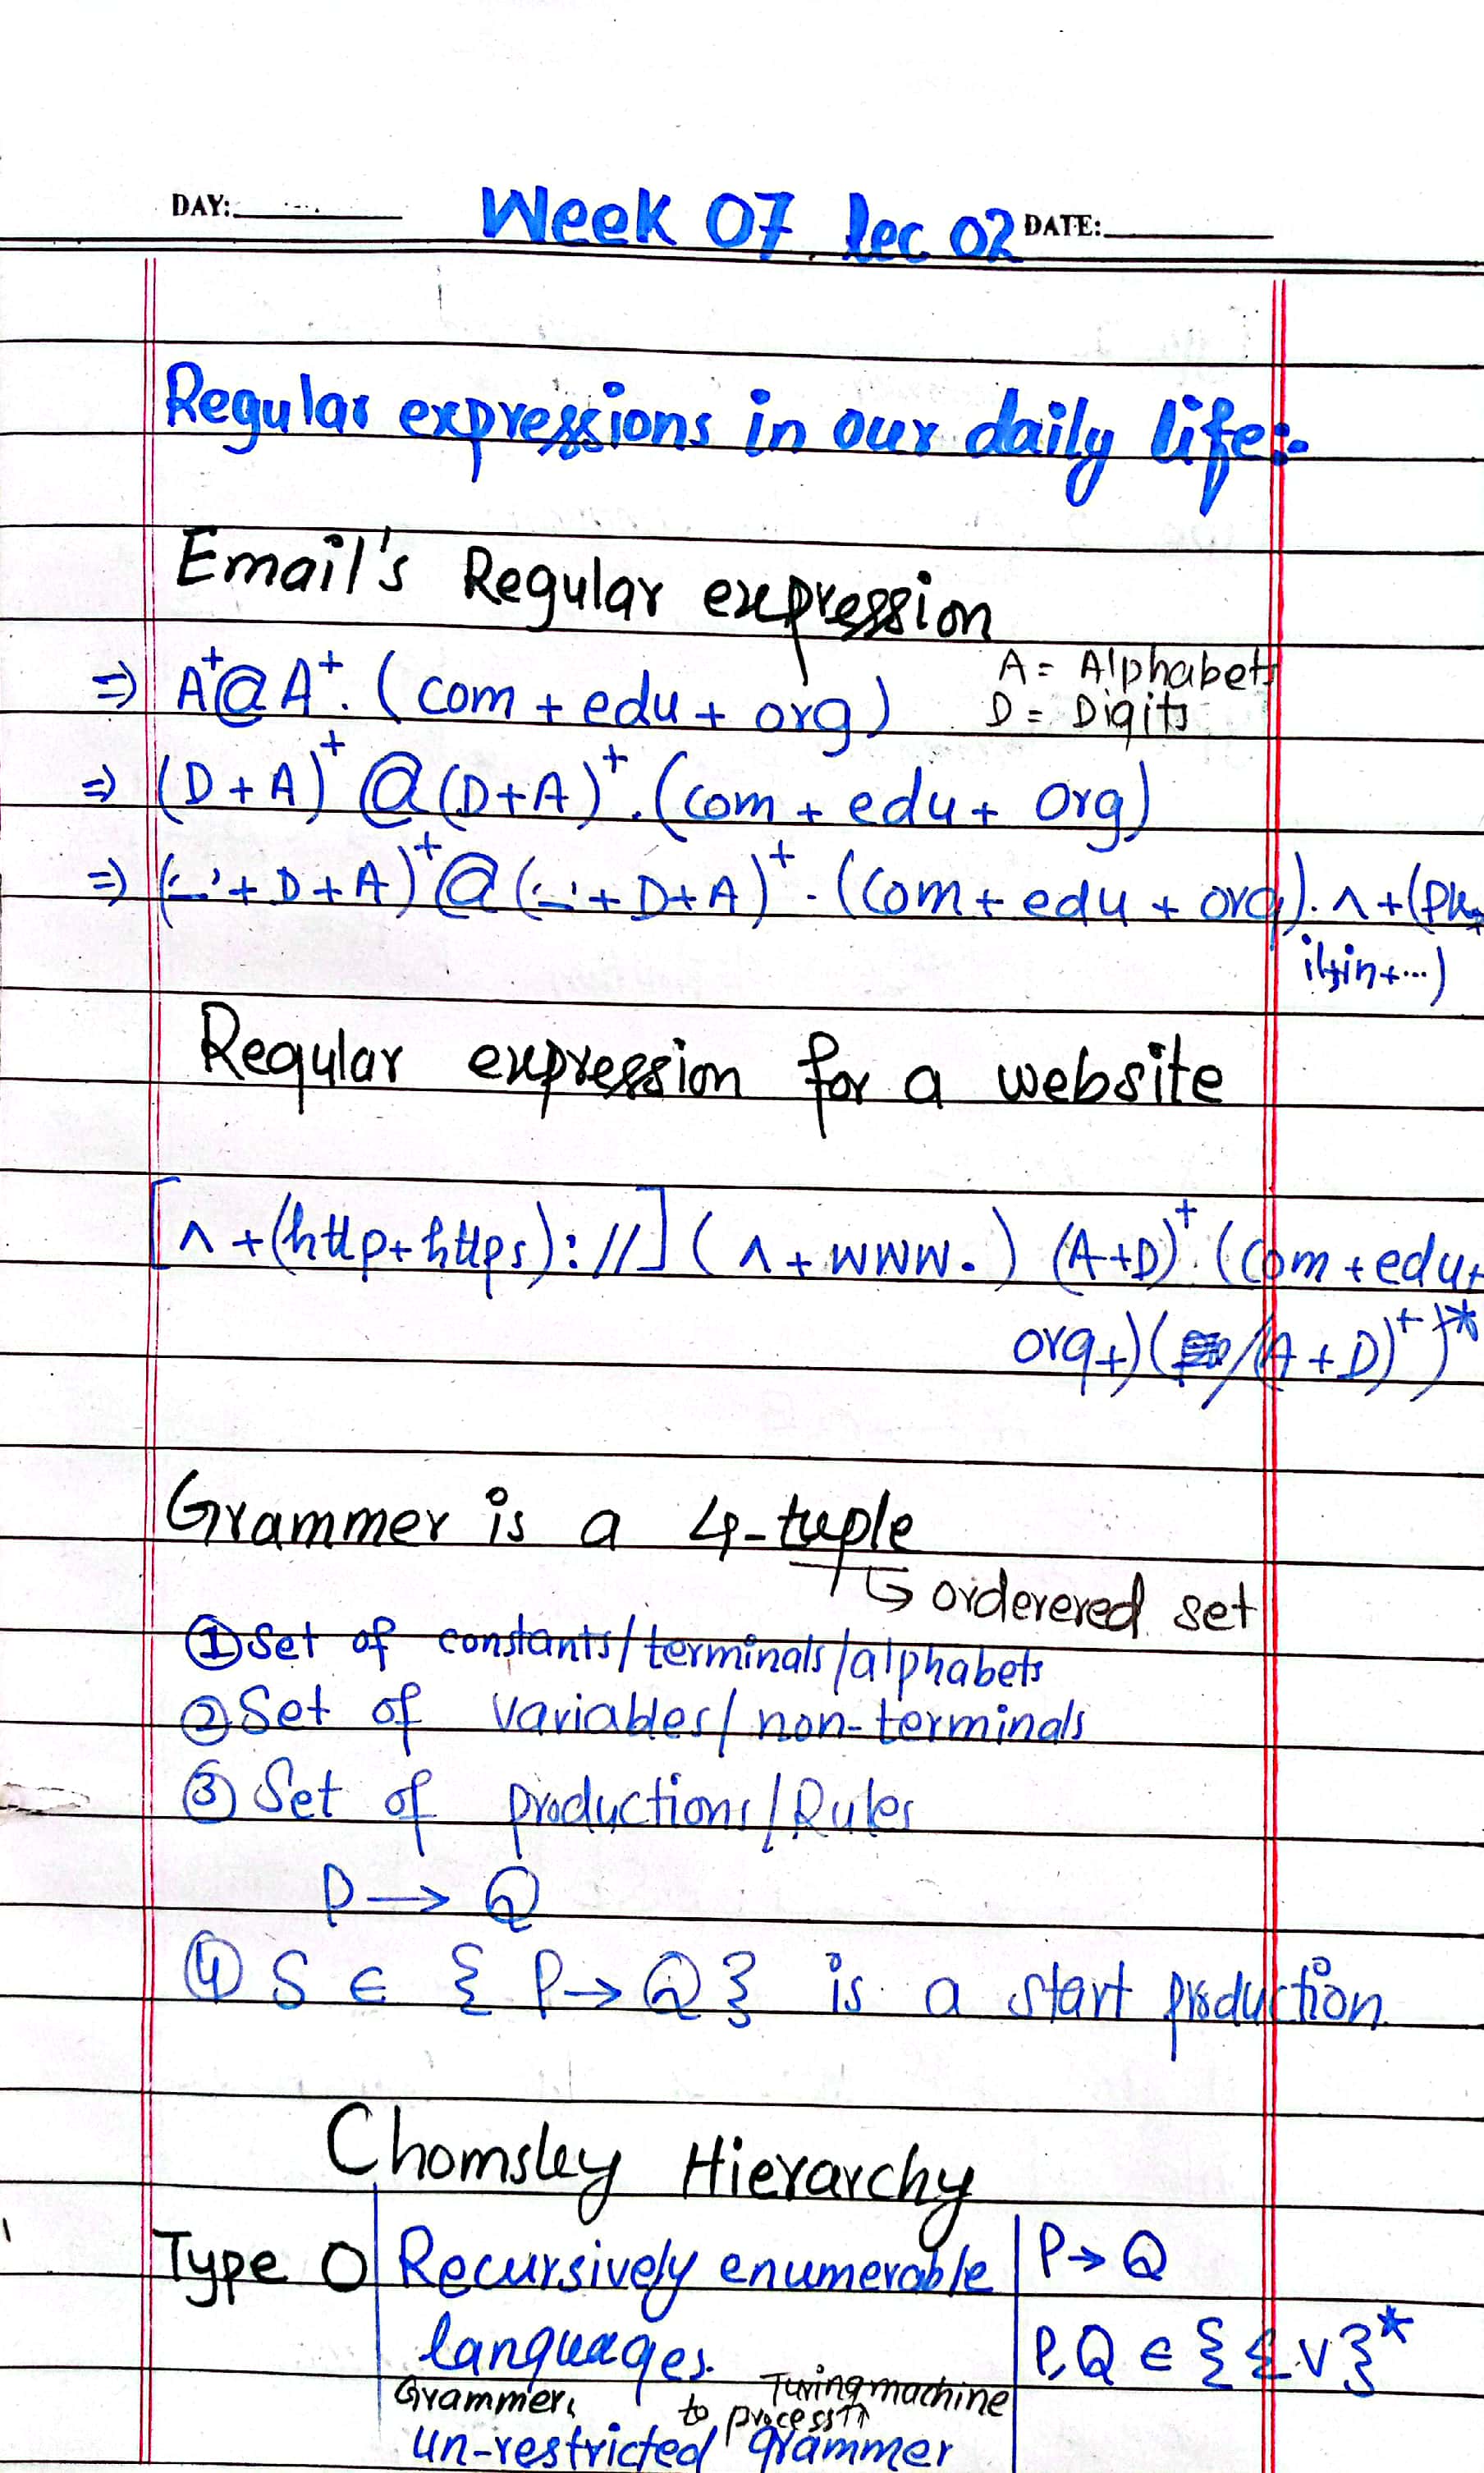 DAY: Week 07, lec 02 DATE:
Regular expressions in our daily life:-
Email's Regular expression
⇒ A⁺@A⁺. (com + edu + org) A = Alphabets
D = Digits
⇒ (D + A)⁺ @ (D+A)⁺ . (com + edu + org)
⇒ ('_' + D + A)⁺ @ ('_' + D+A)⁺ . (com + edu + org). ∧ + (pk+
il+in+...)
Regular expression for a website
[∧ + (http+https)://] (∧ + www.) (A+D)⁺. (com + edu+
org+)(/(A + D)⁺)*
Grammer is a 4-tuple
↳ orderered set
① Set of constants/terminals/alphabets
② Set of variables/non-terminals
③ Set of productions/Rules
P → Q
④ S ∈ { P → Q } is a start production
Chomsley Hierarchy
Type 0 | Recursively enumerable | P → Q
languages. P, Q ∈ { Σ, V }*
Grammer, Turing machine
to process ↑↑
un-restricted grammer